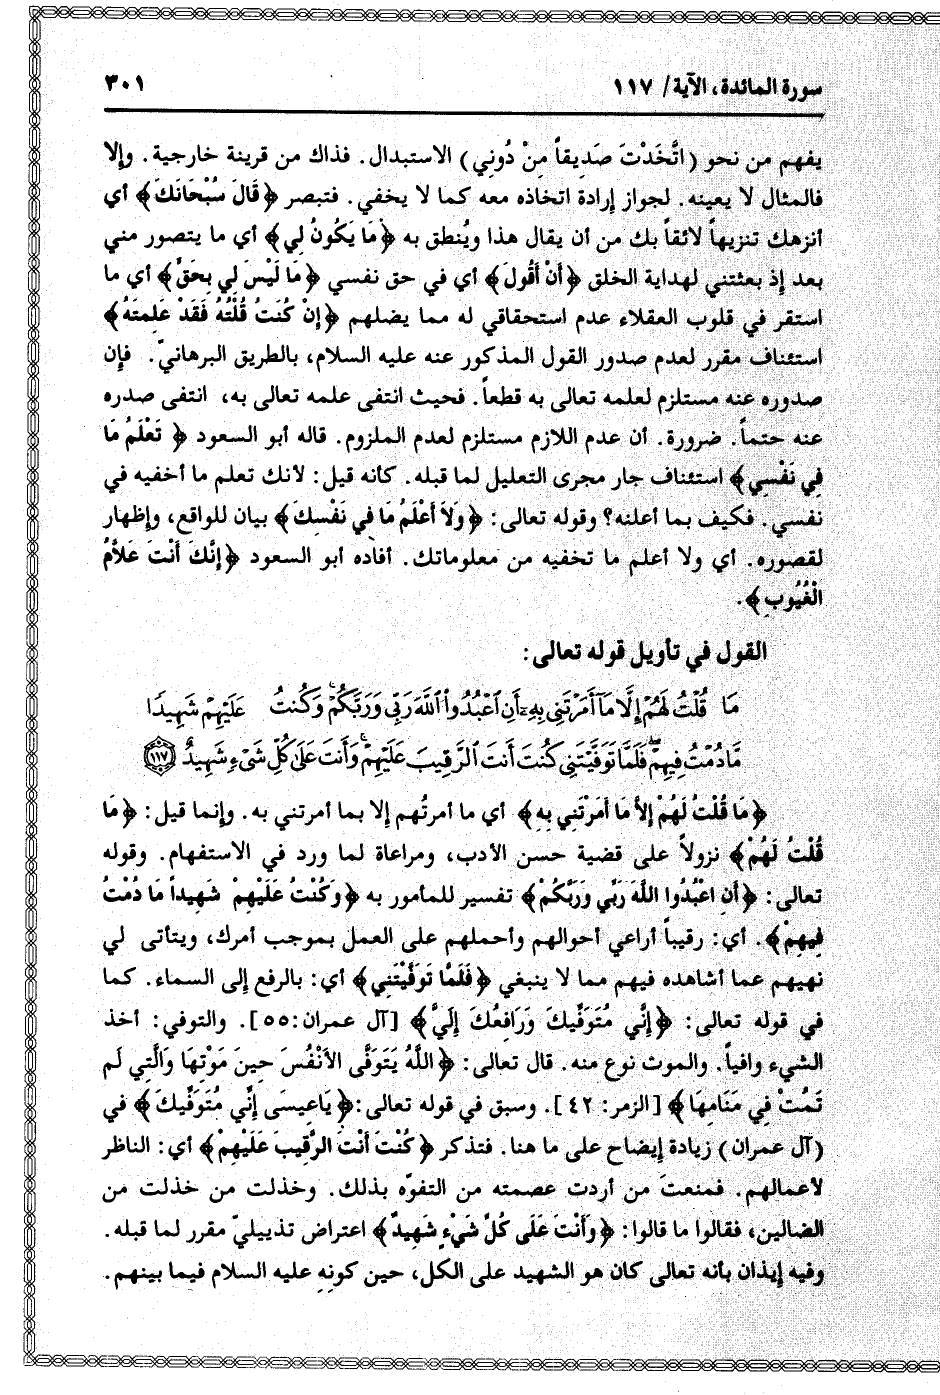 سورة المائدة، الآية/ ١١٧
٣٠١
يفهم من نحو (اتَّخَذْتَ صَدِيقاً مِنْ دُونِي) الاستبدال. فذاك من قرينة خارجية. وإلا
فالمثال لا يعينه. لجواز إرادة اتخاذه معه كما لا يخفي. فتبصر ﴿قَالَ سُبْحَانَكَ﴾ أي
أنزهك تنزيهاً لائقاً بك من أن يقال هذا ويُنطق به ﴿مَا يَكُونُ لِي﴾ أي ما يتصور مني
بعد إذ بعثتني لهداية الخلق ﴿أَنْ أَقُولَ﴾ أي في حق نفسي ﴿مَا لَيْسَ لِي بِحَقٍّ﴾ أي ما
استقر في قلوب العقلاء عدم استحقاقي له مما يضلهم ﴿إِنْ كُنتُ قُلْتُهُ فَقَدْ عَلِمتَهُ﴾
استئناف مقرر لعدم صدور القول المذكور عنه عليه السلام، بالطريق البرهانيّ. فإن
صدوره عنه مستلزم لعلمه تعالى به قطعاً. فحيث انتفى علمه تعالى به، انتفى صدره
عنه حتماً. ضرورة. أن عدم اللازم مستلزم لعدم الملزوم. قاله أبو السعود ﴿ تَعْلَمُ مَا
فِي نَفْسِي﴾ استئناف جار مجرى التعليل لما قبله. كأنه قيل: لأنك تعلم ما أخفيه في
نفسي. فكيف بما أعلنه؟ وقوله تعالى: ﴿وَلاَ أَعْلَمُ مَا فِي نَفْسِكَ﴾ بيان للواقع، وإظهار
لقصوره. أي ولا أعلم ما تخفيه من معلوماتك. أفاده أبو السعود ﴿إِنَّكَ أَنْتَ عَلاَّمُ
الْغُيُوبِ﴾.
القول في تأويل قوله تعالى:
مَا قُلْتُ لَهُمْ إِلَّا مَآ أَمَرْتَنِي بِهِۦٓ أَنِ ٱعْبُدُوا۟ ٱللَّهَ رَبِّي وَرَبَّكُمْ ۚ وَكُنتُ عَلَيْهِمْ شَهِيدًا
مَّا دُمْتُ فِيهِمْ ۖ فَلَمَّا تَوَفَّيْتَنِي كُنتَ أَنتَ ٱلرَّقِيبَ عَلَيْهِمْ ۚ وَأَنتَ عَلَىٰ كُلِّ شَيْءٍ شَهِيدٌ ١١٧
﴿مَا قُلْتُ لَهُمْ إِلاَّ مَا أَمَرْتَنِي بِهِ﴾ أي ما أمرتُهم إلا بما أمرتني به. وإنما قيل: ﴿مَا
قُلْتُ لَهُمْ﴾ نزولاً على قضية حسن الأدب، ومراعاة لما ورد في الاستفهام. وقوله
تعالى: ﴿أَنِ اعْبُدُوا اللَّهَ رَبِّي وَرَبَّكُمْ﴾ تفسير للمأمور به ﴿وَكُنْتُ عَلَيْهِمْ شَهِيداً مَا دُمْتُ
فِيهِمْ﴾. أي: رقيباً أراعي أحوالهم وأحملهم على العمل بموجب أمرك، ويتأتى لي
نهيهم عما أشاهده فيهم مما لا ينبغي ﴿فَلَمَّا تَوَفَّيْتَنِي﴾ أي: بالرفع إلى السماء. كما
في قوله تعالى: ﴿إِنِّي مُتَوَفِّيكَ وَرَافِعُكَ إِلَيَّ﴾ [آل عمران:٥٥]. والتوفي: أخذ
الشيء وافياً. والموت نوع منه. قال تعالى: ﴿اللَّهُ يَتَوَفَّى الأَنْفُسَ حِينَ مَوْتِهَا وَالَّتِي لَم
تَمُتْ فِي مَنَامِهَا﴾ [الزمر: ٤٢]. وسبق في قوله تعالى:﴿يَاعِيسَى إِنِّي مُتَوَفِّيكَ﴾ في
(آل عمران) زيادة إيضاح على ما هنا. فتذكر ﴿كُنْتَ أَنْتَ الرَّقِيبَ عَلَيْهِمْ﴾ أي: الناظر
لأعمالهم. فمنعتَ من أردت عصمته من التفوّه بذلك. وخذلت من خذلت من
الضالين، فقالوا ما قالوا: ﴿وَأَنْتَ عَلَى كُلِّ شَيْءٍ شَهِيدٌ﴾ اعتراض تذييليّ مقرر لما قبله.
وفيه إيذان بأنه تعالى كان هو الشهيد على الكل، حين كونِهِ عليه السلام فيما بينهم.